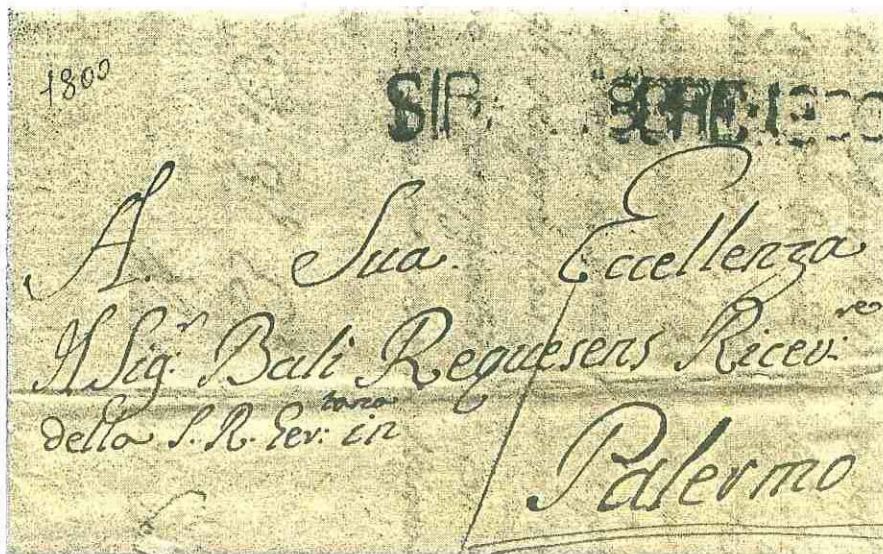 1800
SIR
A. Sua Eccellenza
Il Sig.r Bali Requesens Ricev.re
della S. R. in
Palermo